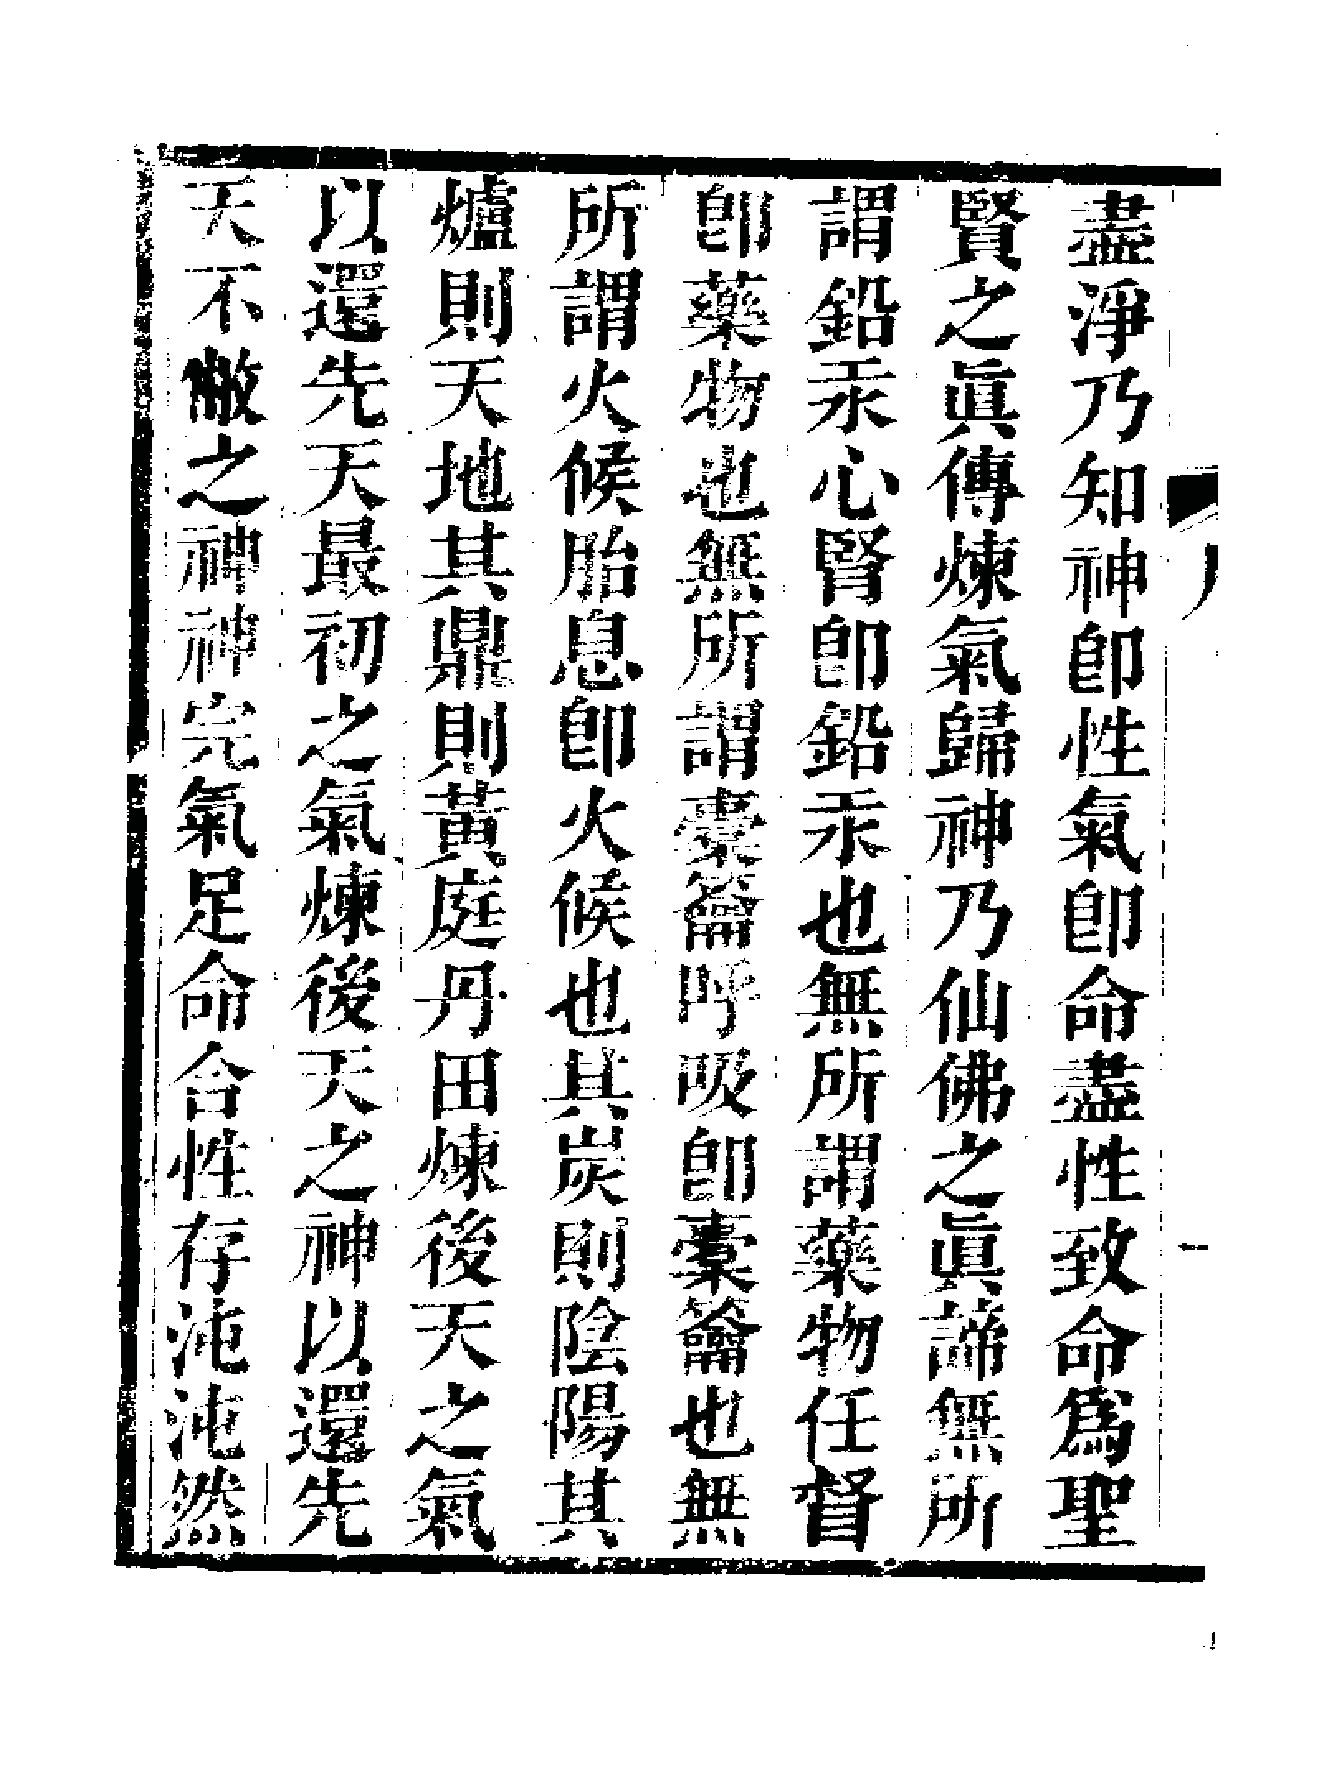 盡淨乃知神卽性氣卽命盡性致命爲聖
賢之眞傳煉氣歸神乃仙佛之眞諦無所
謂鉛汞心腎卽鉛汞也無所謂藥物任督
卽藥物也無所謂橐籥呼吸卽橐籥也無
所謂火候胎息卽火候也其炭則陰陽其
爐則天地其鼎則黃庭丹田煉後天之氣
以還先天最初之氣煉後天之神以還先
天不敝之神神完氣足命合性存沌沌然